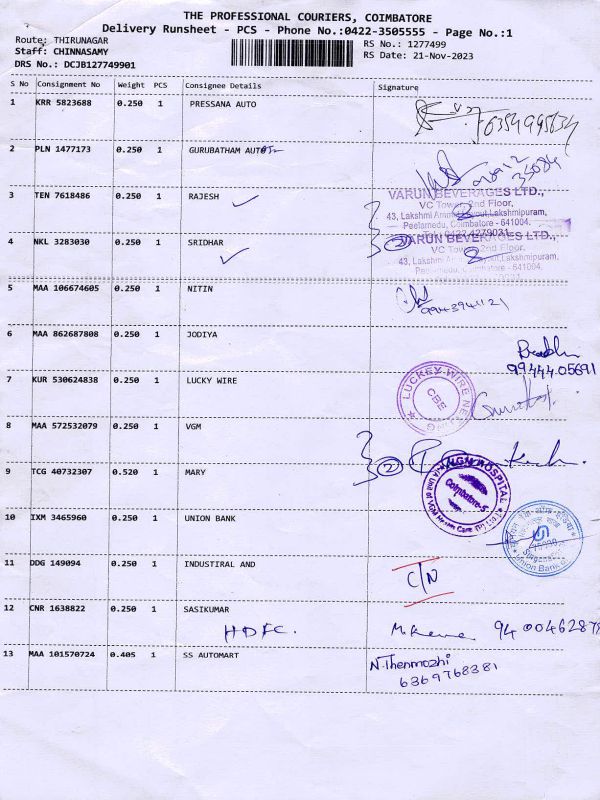 THE PROFESSIONAL COURIERS, COIMBATORE
Delivery Runsheet - PCS - Phone No.:0422-3505555 - Page No.:1
Route: THIRUNAGAR
Staff: CHINNASAMY
DRS No.: DCJB127749901
RS No.: 1277499
RS Date: 21-Nov-2023
S No Consignment No Weight PCS Consignee Details Signature
1 KRR 5823688 0.250 1 PRESSANA AUTO
2 PLN 1477173 0.250 1 GURUBATHAM
3 TEN 7618486 0.250 1 RAJESH
VARUN BEVERAGES LTD.,
VC Tower, 2nd Floor,
43, Lakshmi Layout, Lakshmipuram,
Peelamedu, Coimbatore - 641004.
4 NKL 3283030 0.250 1 SRIDHAR
2
VARUN BEVERAGES LTD.,
VC Tower, 2nd Floor,
43, Lakshmi Layout, Lakshmipuram,
Peelamedu, Coimbatore - 641004.
5 MAA 106674605 0.250 1 NITIN
6 MAA 862687808 0.250 1 JODIYA
99444 05691
7 KUR 530624838 0.250 1 LUCKY WIRE
LUCKEY WIRE
CBE
8 MAA 572532079 0.250 1 VGM
9 TCG 40732307 0.520 1 MARY
2
HOSPITAL
Coimbatore-5
10 IXM 3465960 0.250 1 UNION BANK
Union Bank
11 DDG 149094 0.250 1 INDUSTIRAL AND
C/N
12 CNR 1638822 0.250 1 SASIKUMAR
HDFC.
13 MAA 101570724 0.405 1 SS AUTOMART
N.Thenmozhi
6369768381